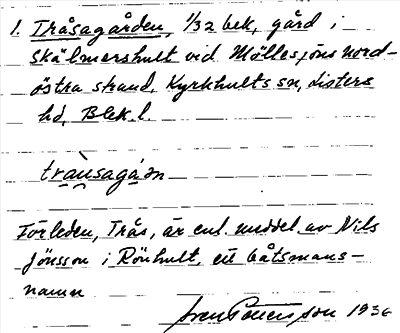 1. Tråsagården, 1/32 bek, gård i
Skälmershult vid Möllesjöns nord-
östra strand, Kyrkhults sn, Listers
hd, Blek.l.
tràusagá:n
Förleden, Trås, är enl. meddel. av Nils
Jönsson i Rönhult, ett båtsmans-
namn
1936